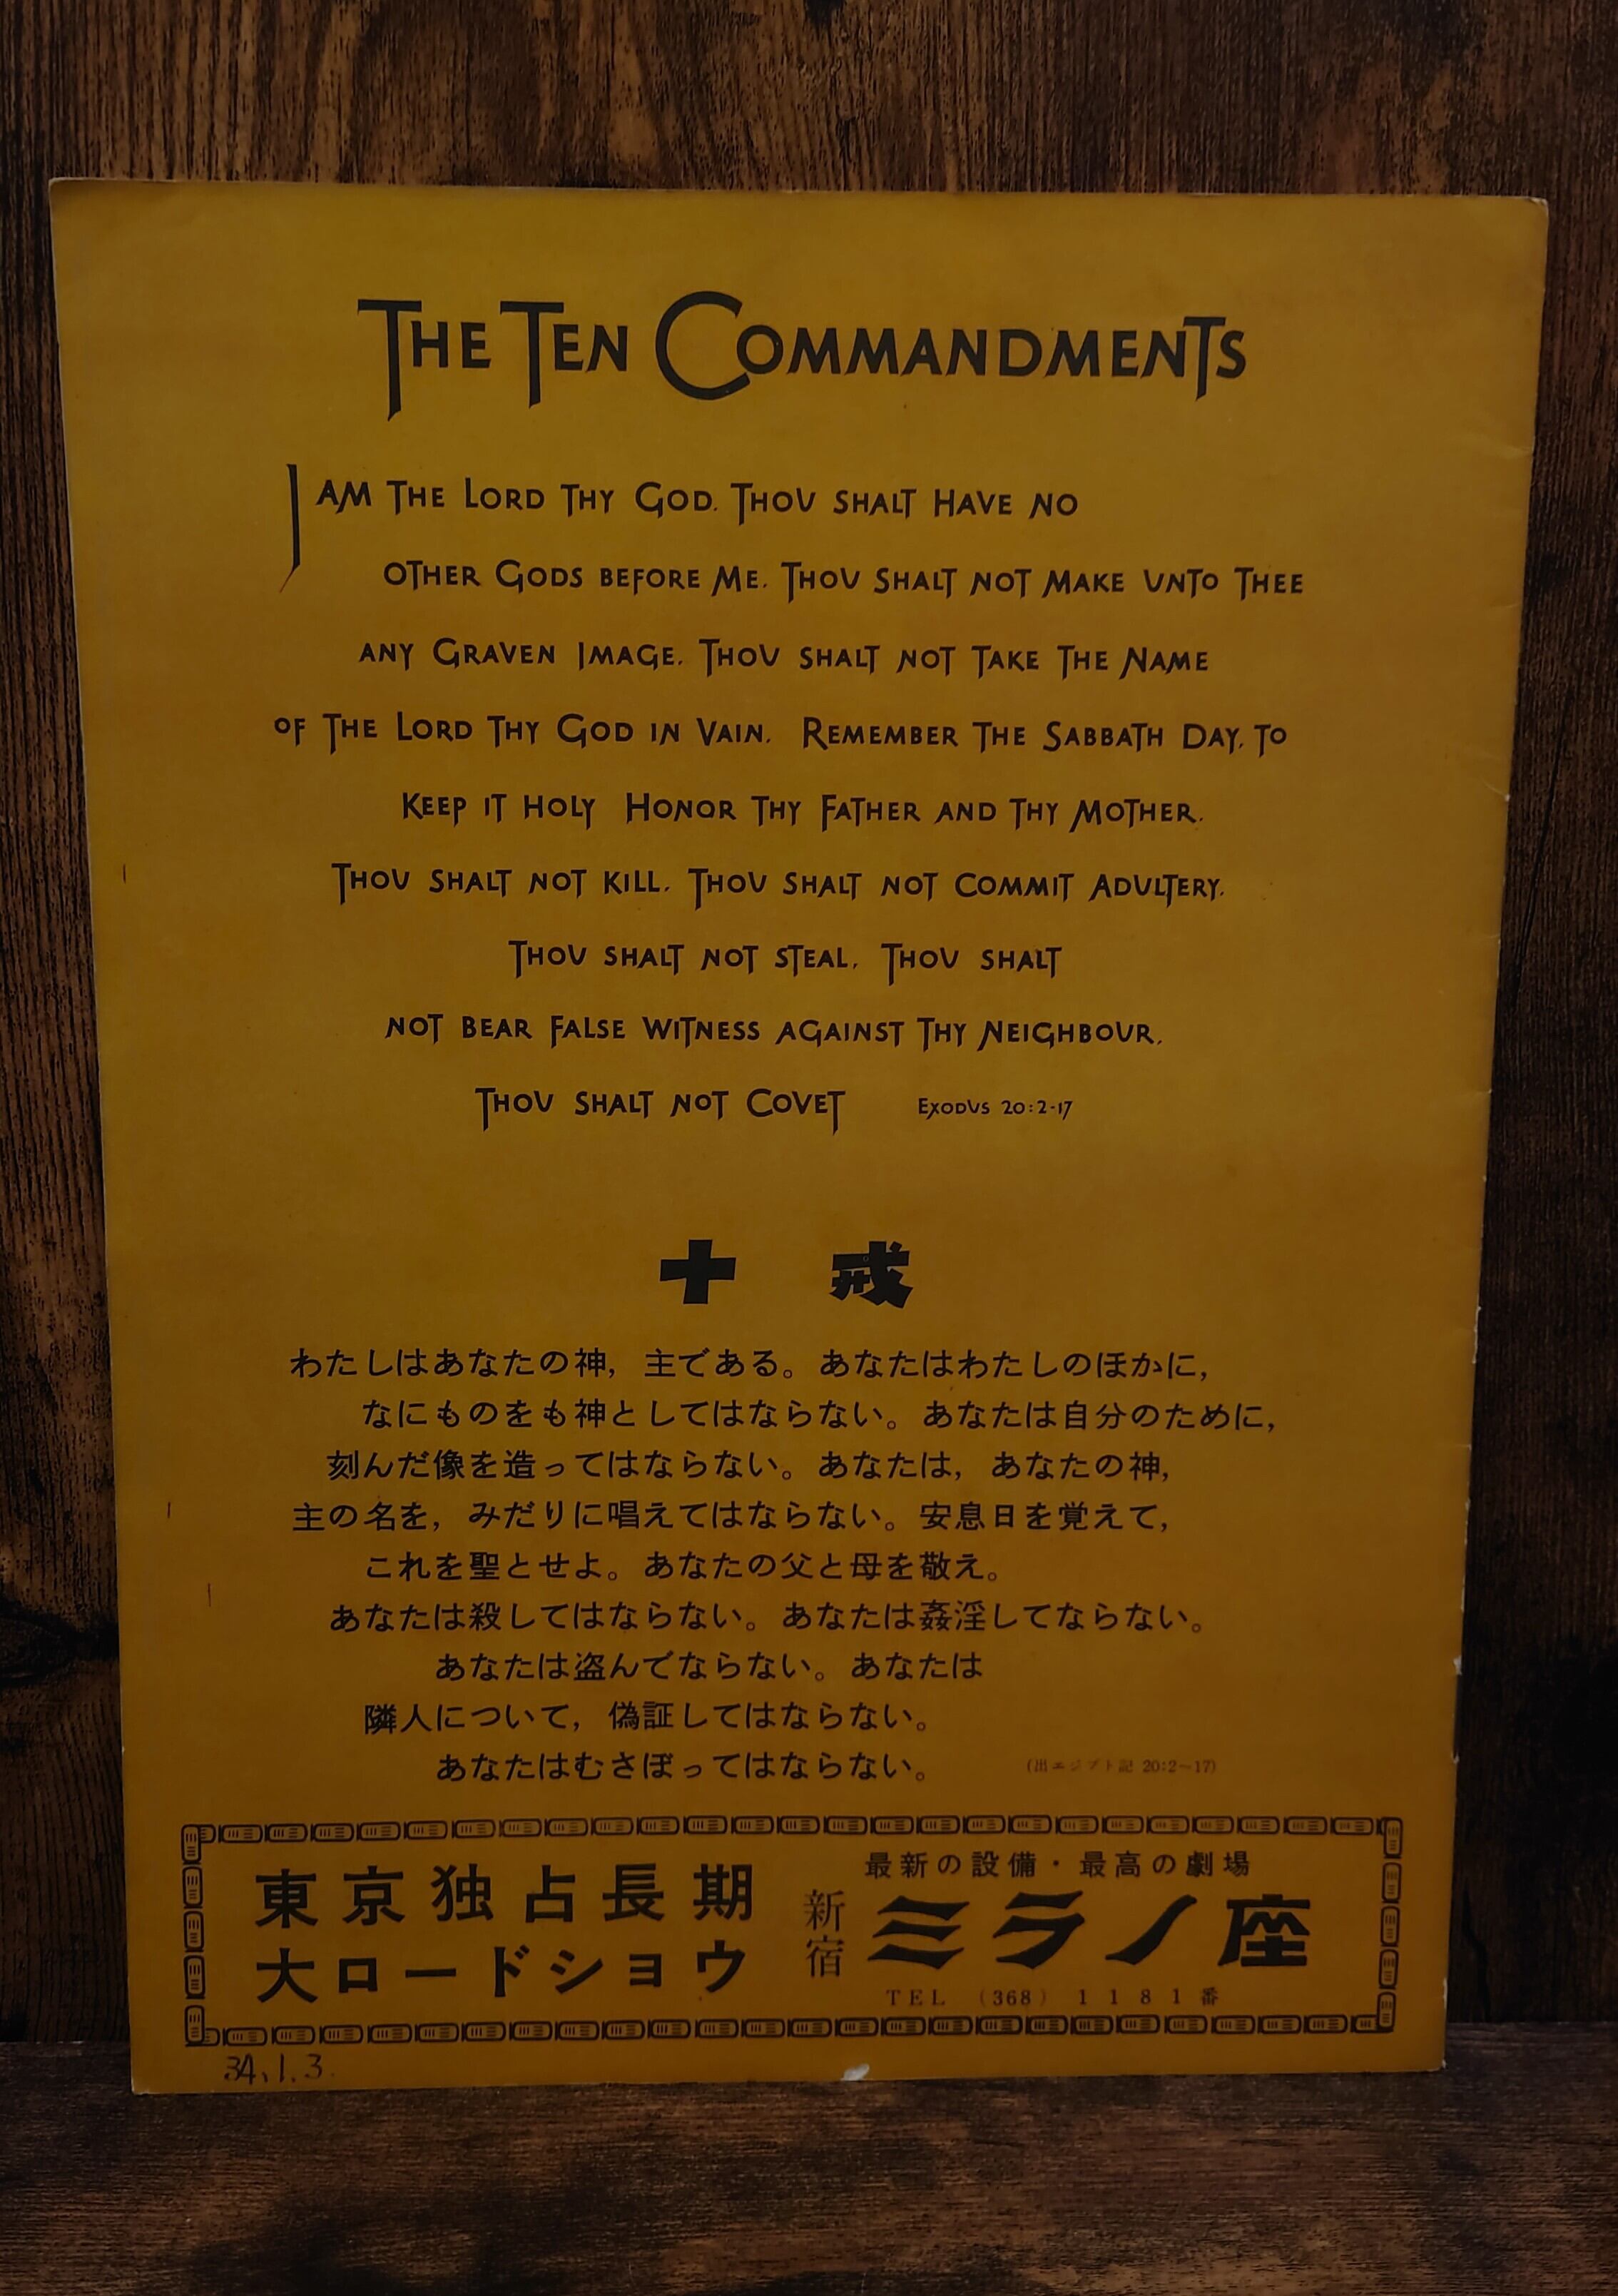 THE TEN COMMANDMENTS
I AM THE LORD THY GOD. THOU SHALT HAVE NO
OTHER GODS BEFORE ME. THOU SHALT NOT MAKE UNTO THEE
ANY GRAVEN IMAGE. THOU SHALT NOT TAKE THE NAME
OF THE LORD THY GOD IN VAIN. REMEMBER THE SABBATH DAY, TO
KEEP IT HOLY HONOR THY FATHER AND THY MOTHER.
THOU SHALT NOT KILL. THOU SHALT NOT COMMIT ADULTERY.
THOU SHALT NOT STEAL. THOU SHALT
NOT BEAR FALSE WITNESS AGAINST THY NEIGHBOUR.
THOU SHALT NOT COVET EXODUS 20:2-17
十戒
わたしはあなたの神，主である。あなたはわたしのほかに，
なにものをも神としてはならない。あなたは自分のために，
刻んだ像を造ってはならない。あなたは，あなたの神，
主の名を，みだりに唱えてはならない。安息日を覚えて，
これを聖とせよ。あなたの父と母を敬え。
あなたは殺してはならない。あなたは姦淫してならない。
あなたは盗んでならない。あなたは
隣人について，偽証してはならない。
あなたはむさぼってはならない。 (出エジプト記 20:2〜17)
東京独占長期
大ロードショウ
最新の設備・最高の劇場
新宿 ミラノ座
TEL (368) 1181番
34.1.3.